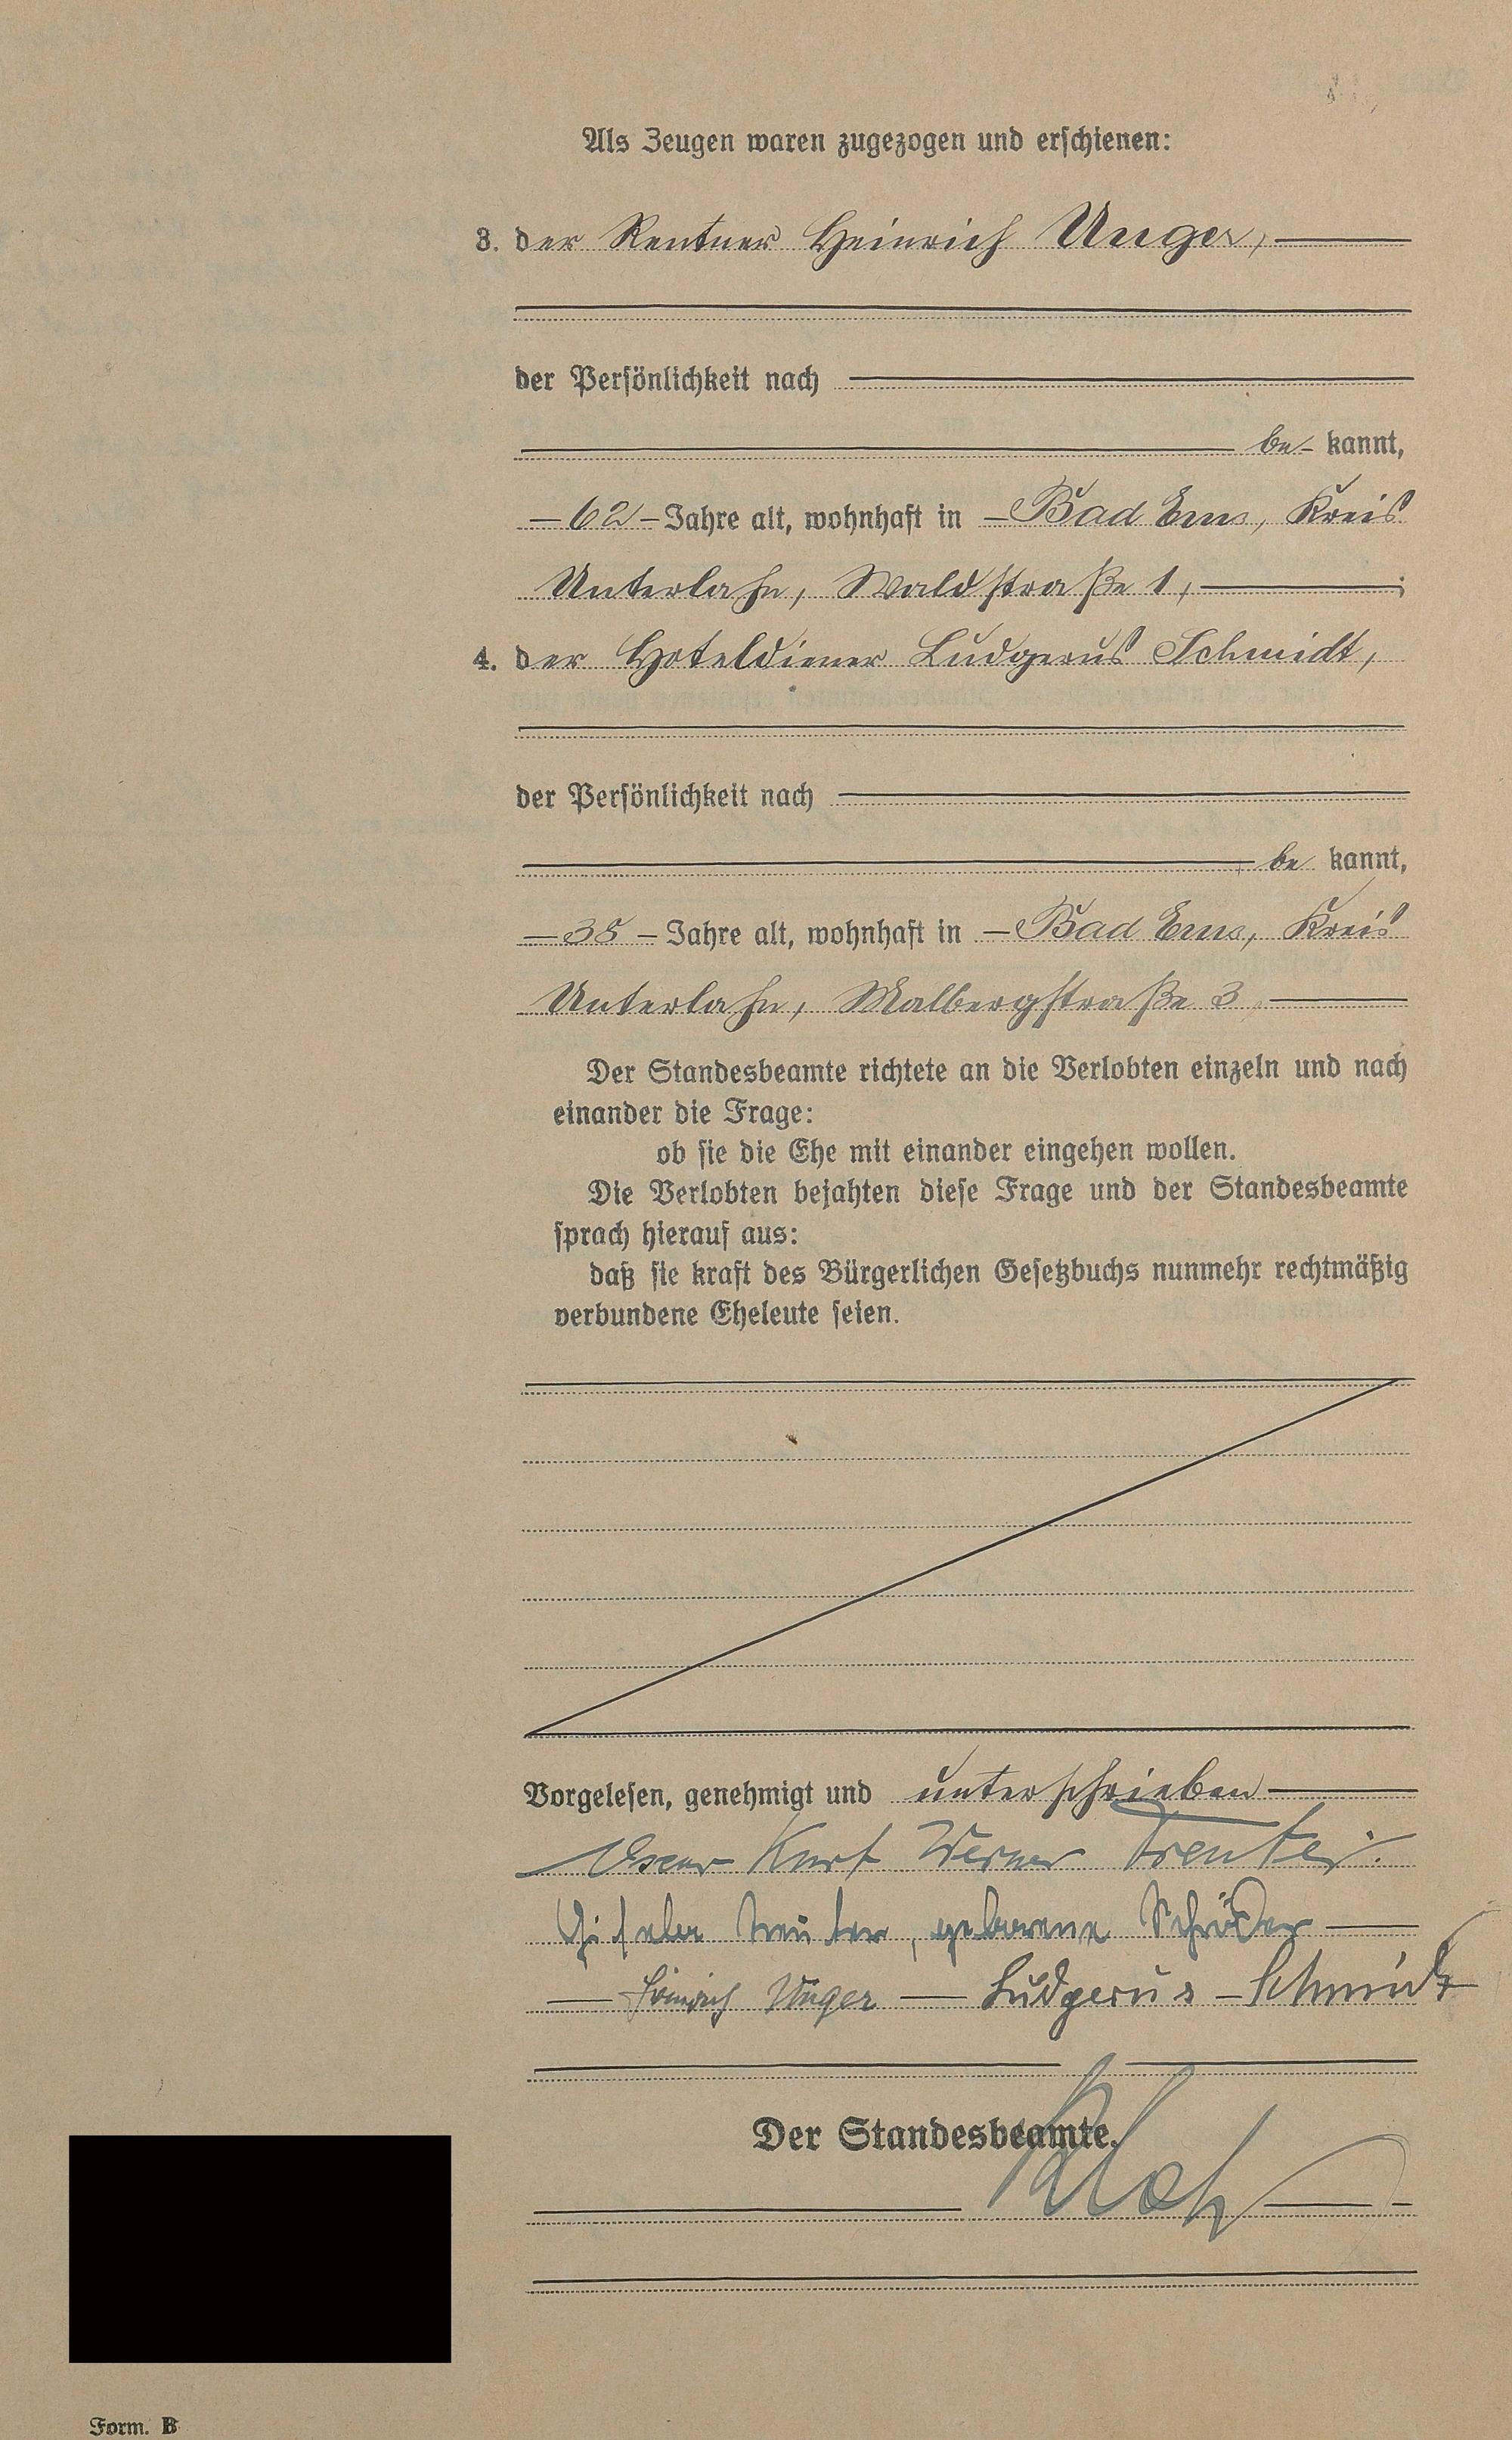 Als Zeugen waren zugezogen und erschienen:
3. der Rentner Heinrich Unger,
der Persönlichkeit nach
be kannt,
62 Jahre alt, wohnhaft in Bad Ems, Kreis
Unterlahn, Waldstraße 1,;
4. der Hoteldiener Ludgerus Schmidt,
der Persönlichkeit nach
be kannt,
38 Jahre alt, wohnhaft in Bad Ems, Kreis
Unterlahn, Malbergstraße 3
Der Standesbeamte richtete an die Verlobten einzeln und nach
einander die Frage:
ob sie die Ehe mit einander eingehen wollen.
Die Verlobten bejahten diese Frage und der Standesbeamte
sprach hierauf aus:
daß sie kraft des Bürgerlichen Gesetzbuchs nunmehr rechtmäßig
verbundene Eheleute seien.
Vorgelesen, genehmigt und unterschrieben
Oscar Kurt Werner Treuter.
Gisela Treuter, geborene Schröder
Heinrich Unger – Ludgerus – Schmidt
Der Standesbeamte.
Form. B